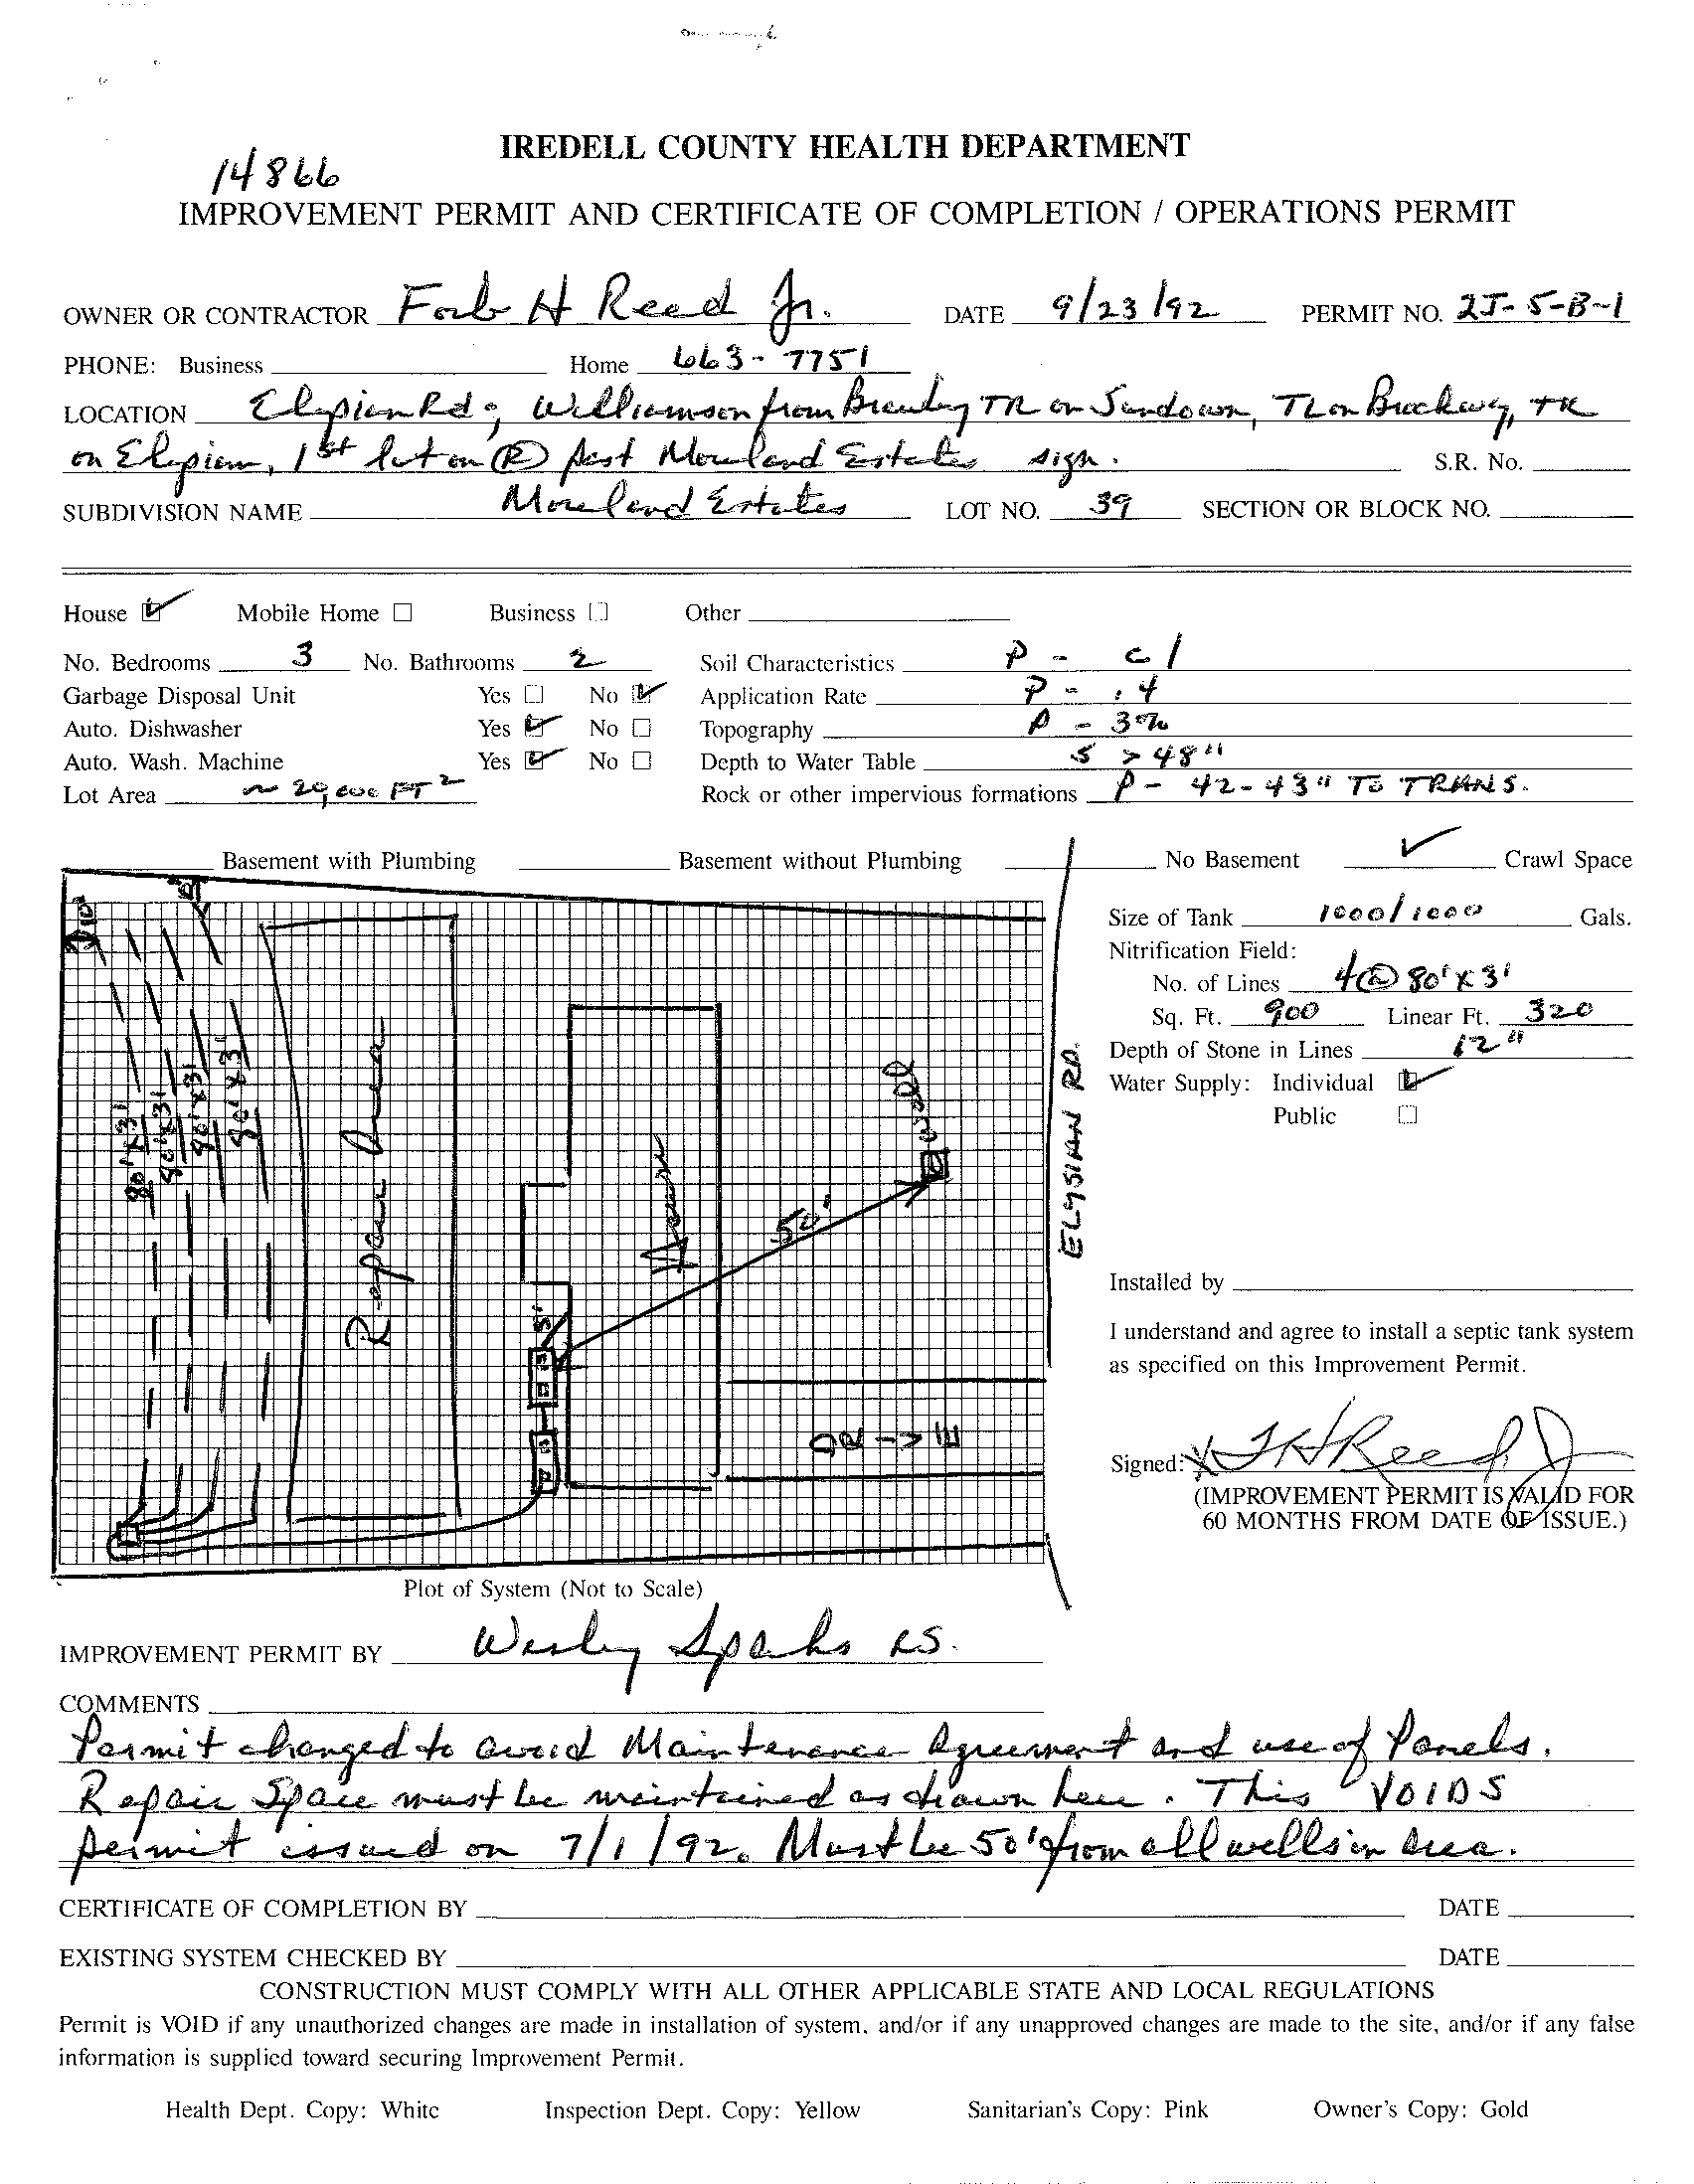 IREDELL COUNTY HEALTH DEPARTMENT
14866
IMPROVEMENT PERMIT AND CERTIFICATE OF COMPLETION / OPERATIONS PERMIT
OWNER OR CONTRACTOR Forb H Reed Jr. DATE 9/23/92 PERMIT NO. 2J-5-B-1
PHONE: Business Home 663-7751
LOCATION Rd; Williamson from Brawley TR on Sundown, TL on Brockway, TR
on 1st lot on (R) past Moreland Estates sign. S.R. No.
SUBDIVISION NAME Moreland Estates LOT NO. 39 SECTION OR BLOCK NO.
House Mobile Home Business Other
No. Bedrooms 3 No. Bathrooms 2 Soil Characteristics P - cl
Garbage Disposal Unit Yes No Application Rate P - .4
Auto. Dishwasher Yes No Topography P - 3%
Auto. Wash. Machine Yes No Depth to Water Table S > 48"
Lot Area ~ 29,000 FT2 Rock or other impervious formations P - 42-43" TO TRANS.
Basement with Plumbing Basement without Plumbing No Basement Crawl Space
10'
Size of Tank 1000/1000 Gals.
Nitrification Field:
No. of Lines 4@80'x3'
Sq. Ft. 900 Linear Ft. 320
Depth of Stone in Lines 12"
Water Supply: Individual
Public
80'x3'
80'x3'
80'x3'
80'x3'
Repair Area
House
Well
50'
5'
ELYSIAN RD.
Installed by
I understand and agree to install a septic tank system
as specified on this Improvement Permit.
Signed: X F H Reed Jr
(IMPROVEMENT PERMIT IS VALID FOR
60 MONTHS FROM DATE OF ISSUE.)
Plot of System (Not to Scale)
IMPROVEMENT PERMIT BY Wesley Sparks RS.
COMMENTS
Permit changed to avoid Maintenance Agreement and use of Panels.
Repair Space must be maintained as drawn here. This VOIDS
permit issued on 7/1/92. Must be 50' from all wells in area.
CERTIFICATE OF COMPLETION BY DATE
EXISTING SYSTEM CHECKED BY DATE
CONSTRUCTION MUST COMPLY WITH ALL OTHER APPLICABLE STATE AND LOCAL REGULATIONS
Permit is VOID if any unauthorized changes are made in installation of system, and/or if any unapproved changes are made to the site, and/or if any false
information is supplied toward securing Improvement Permit.
Health Dept. Copy: White Inspection Dept. Copy: Yellow Sanitarian's Copy: Pink Owner's Copy: Gold